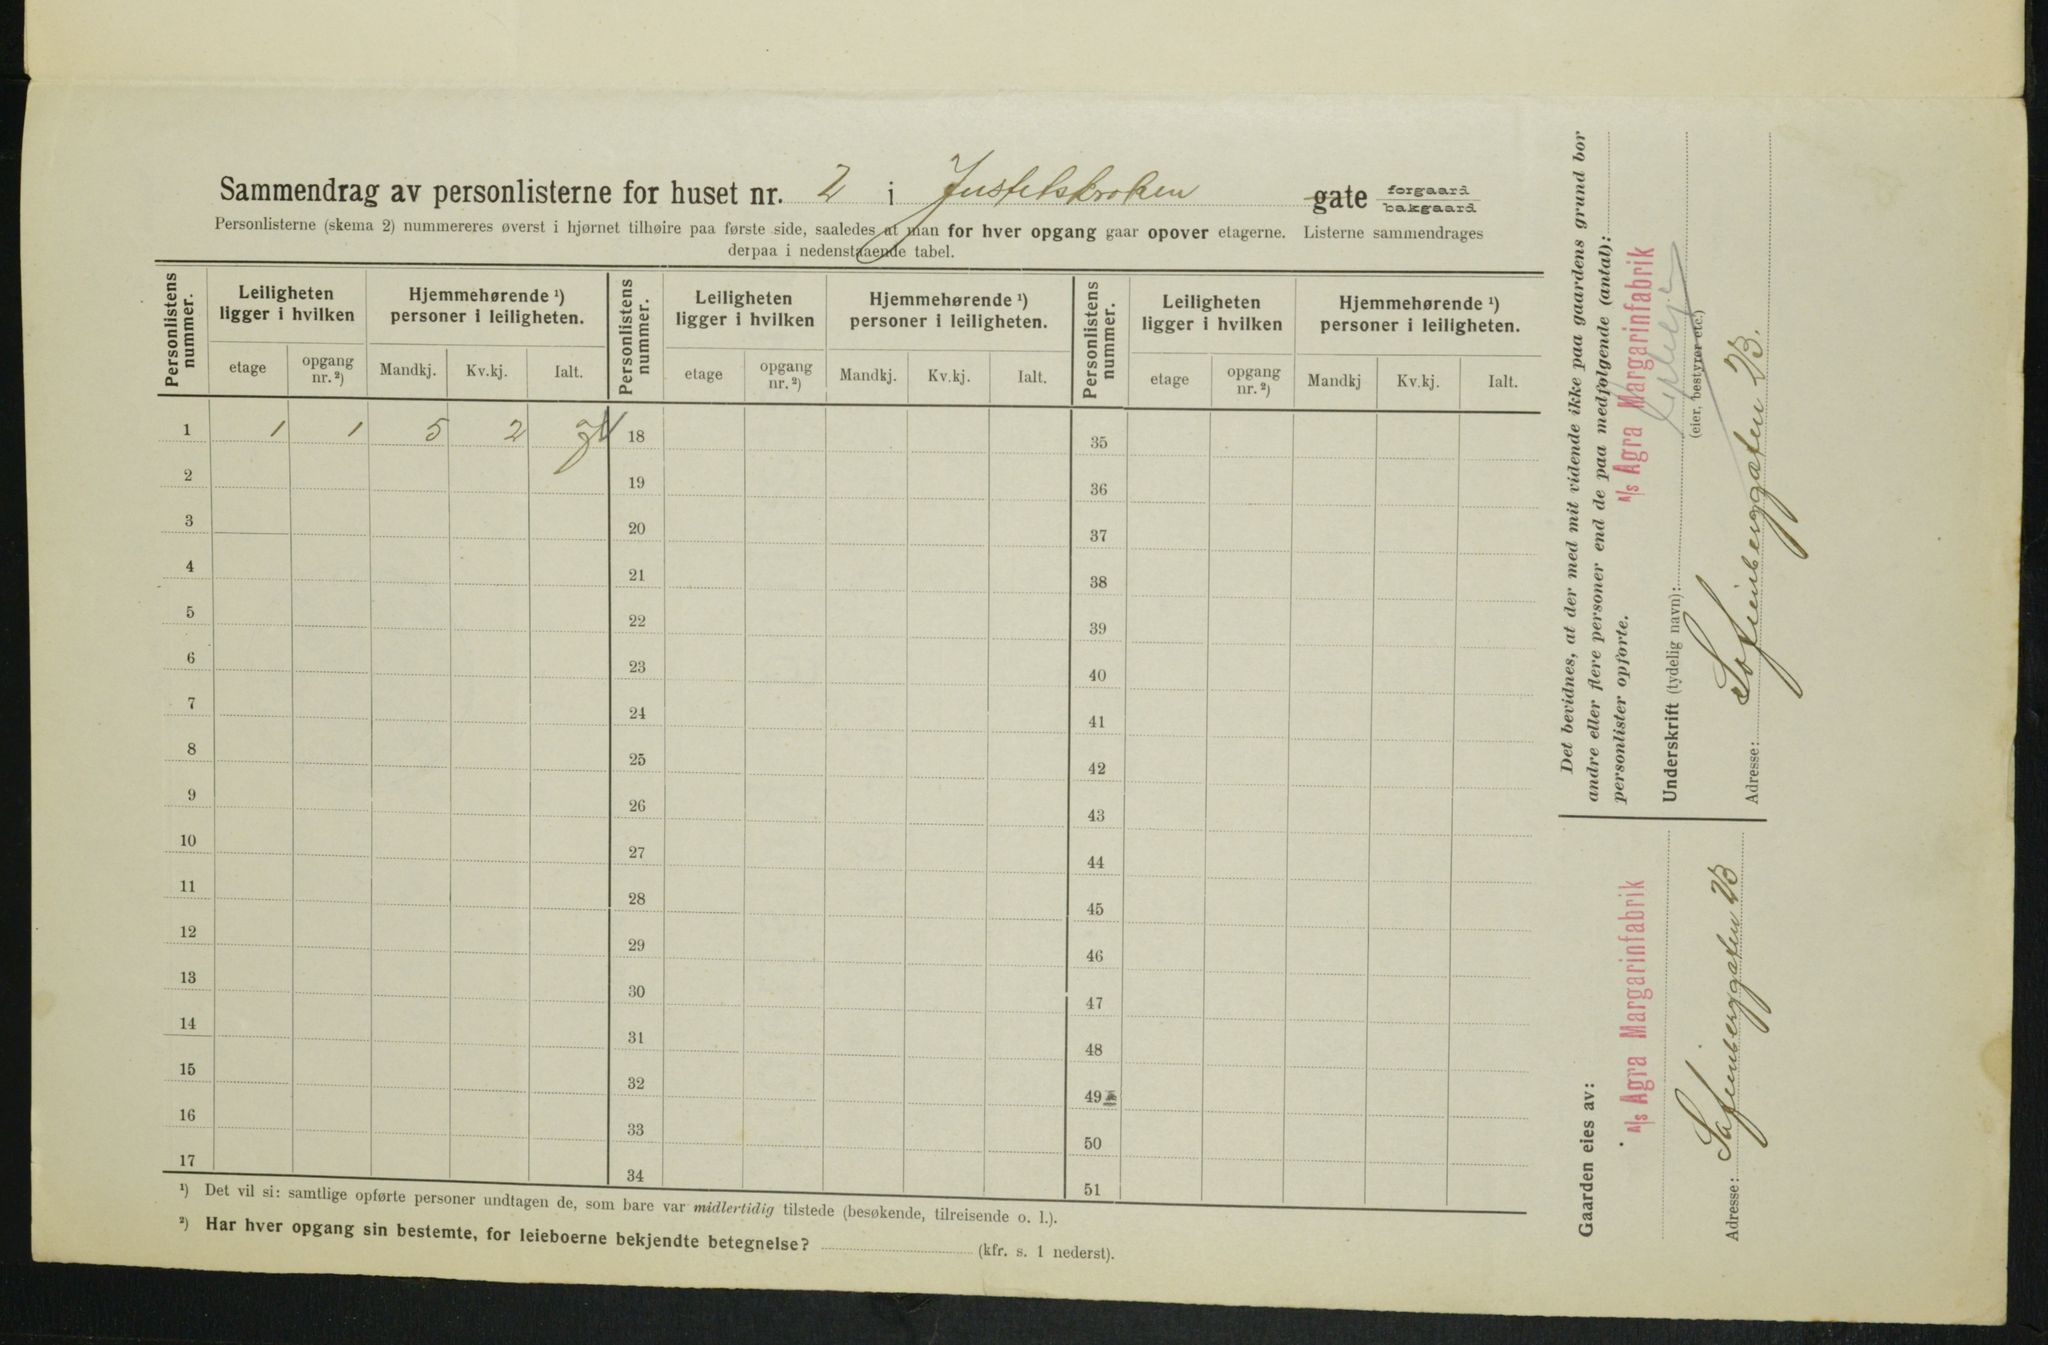 Sammendrag av personlisterne for huset nr. 2 i Justetskroken gate forgaard bakgaard
Personlisterne (skema 2) nummereres øverst i hjørnet tilhøire paa første side, saaledes at man for hver opgang gaar opover etagerne. Listerne sammendrages
derpaa i nedenstaaende tabel.
Personlistens nummer. Leiligheten ligger i hvilken Hjemmehørende ¹) personer i leiligheten. Personlistens nummer. Leiligheten ligger i hvilken Hjemmehørende ¹) personer i leiligheten. Personlistens nummer. Leiligheten ligger i hvilken Hjemmehørende ¹) personer i leiligheten.
etage opgang nr.²) Mandkj. Kv.kj. Ialt. etage opgang nr.²) Mandkj. Kv.kj. Ialt. etage opgang nr.²) Mandkj Kv.kj. Ialt.
1 1 1 5 2 7 18 35
2 19 36
3 20 37
4 21 38
5 22 39
6 23 40
7 24 41
8 25 42
9 26 43
10 27 44
11 28 45
12 29 46
13 30 47
14 31 48
15 32 49
16 33 50
17 34 51
¹) Det vil si: samtlige opførte personer undtagen de, som bare var midlertidig tilstede (besøkende, tilreisende o. l.).
²) Har hver opgang sin bestemte, for leieboerne bekjendte betegnelse? (kfr. s. 1 nederst).
Det bevidnes, at der med mit vidende ikke paa gaardens grund bor
andre eller flere personer end de paa medfølgende (antal):
personlister opførte.
A/S Agra Margarinfabrik
Underskrift (tydelig navn):
(eier, bestyrer etc.)
Adresse: Sofienberggaten 2B.
Gaarden eies av:
A/S Agra Margarinfabrik
Adresse: Sofienberggaten 2B